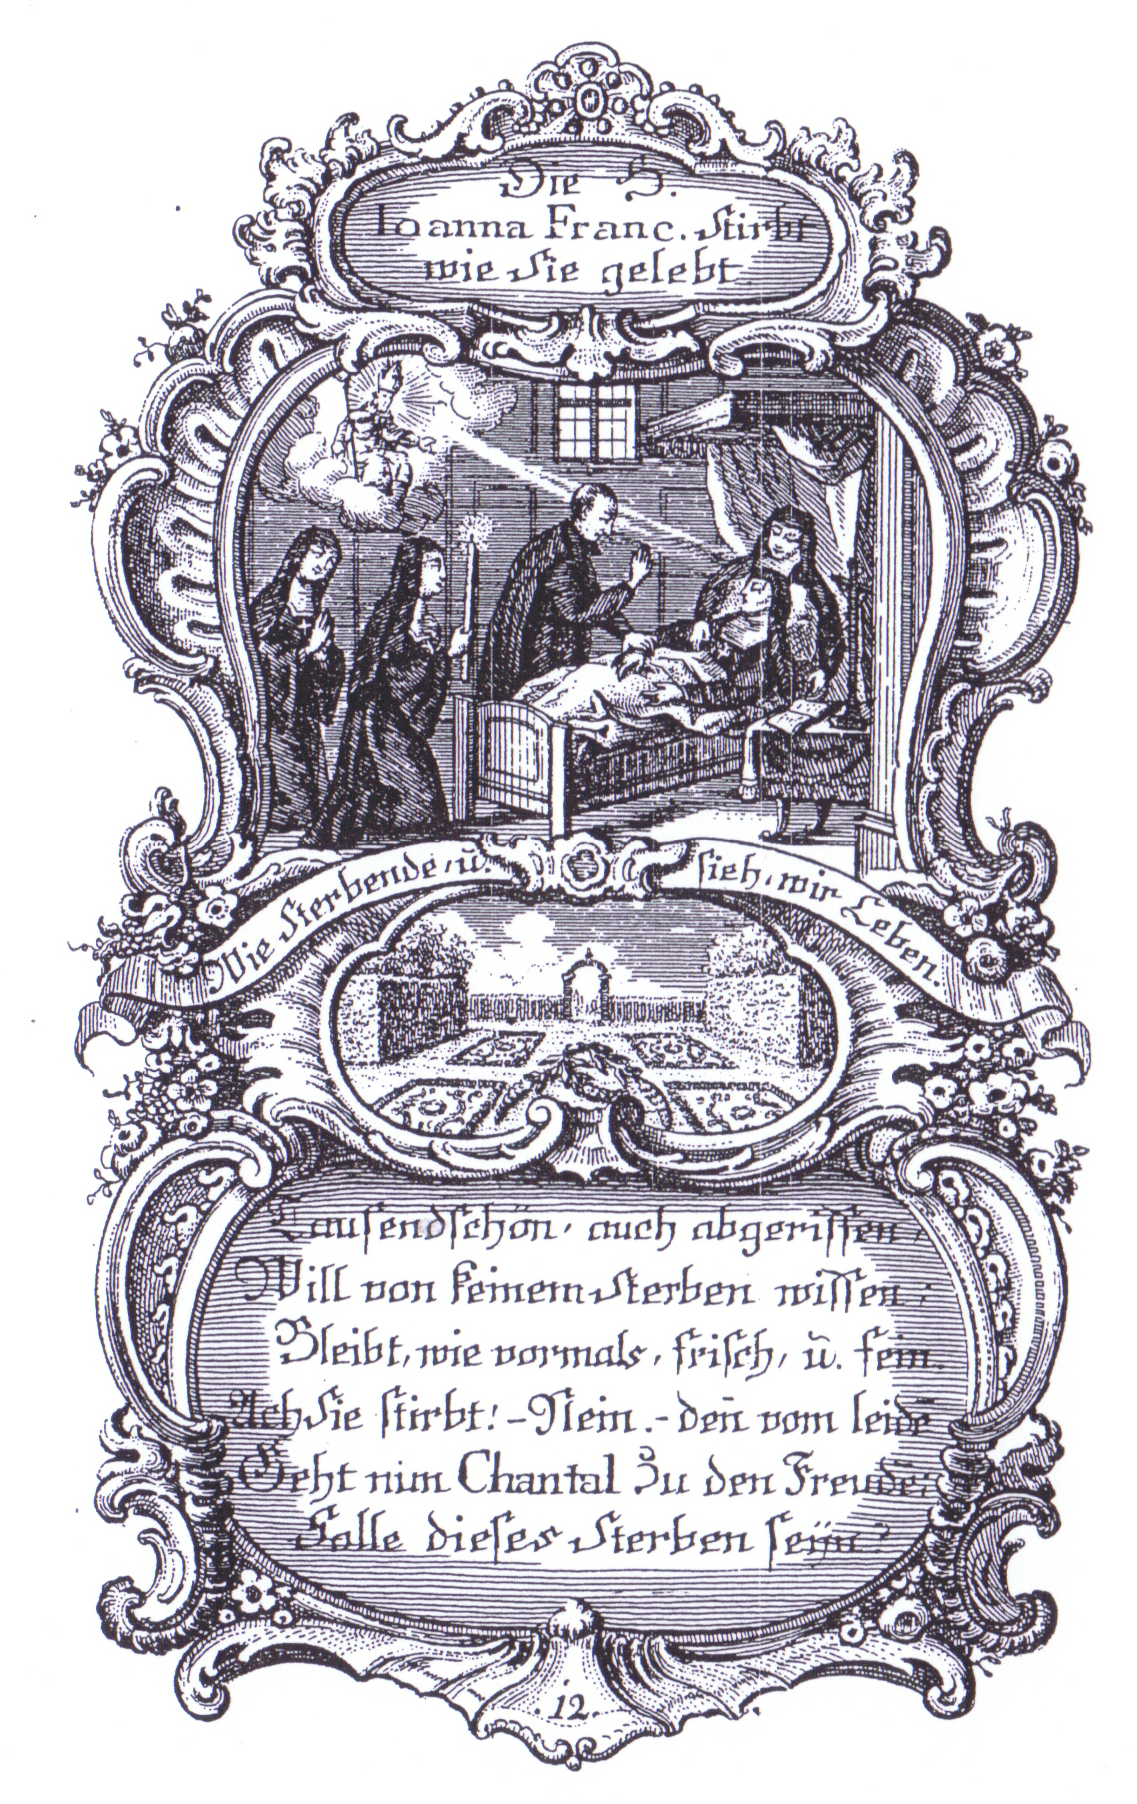 Die S.
Ioanna Franc. Stirbt
wie Sie gelebt.
Wie Sterbende, ū. sieh, wir Leben.
Tausendschön, auch abgerissen,
Will von keinem Sterben wissen:
Bleibt, wie vormals, frisch, ū. fein.
Ach Sie stirbt! - Nein. - deñ vom leidē
Geht nun Chantal Zu den Freudē:
Solle dieses Sterben seÿn?
.12.